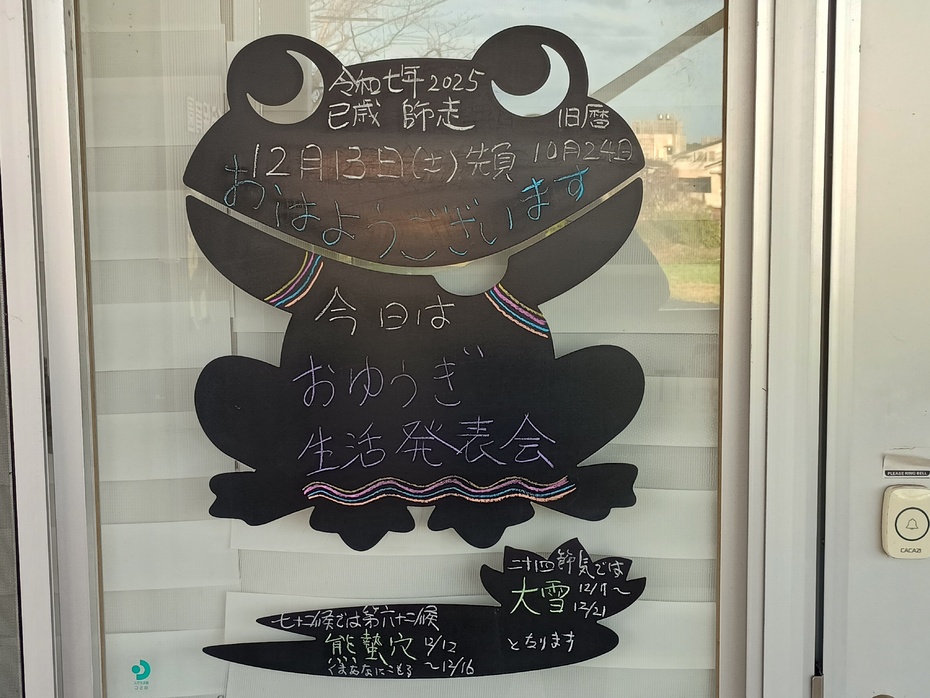 令和七年 2025
巳歳 師走
旧暦
12月13日(土)先負 10月24日
おはようございます
今日は
おゆうぎ
生活発表会
二十四節気では
大雪 12/7〜
12/21
となります
七十二候では第六十二候
熊蟄穴 12/12
くまあなにこもる 〜12/16
PLEASE RING BELL
CACAZI